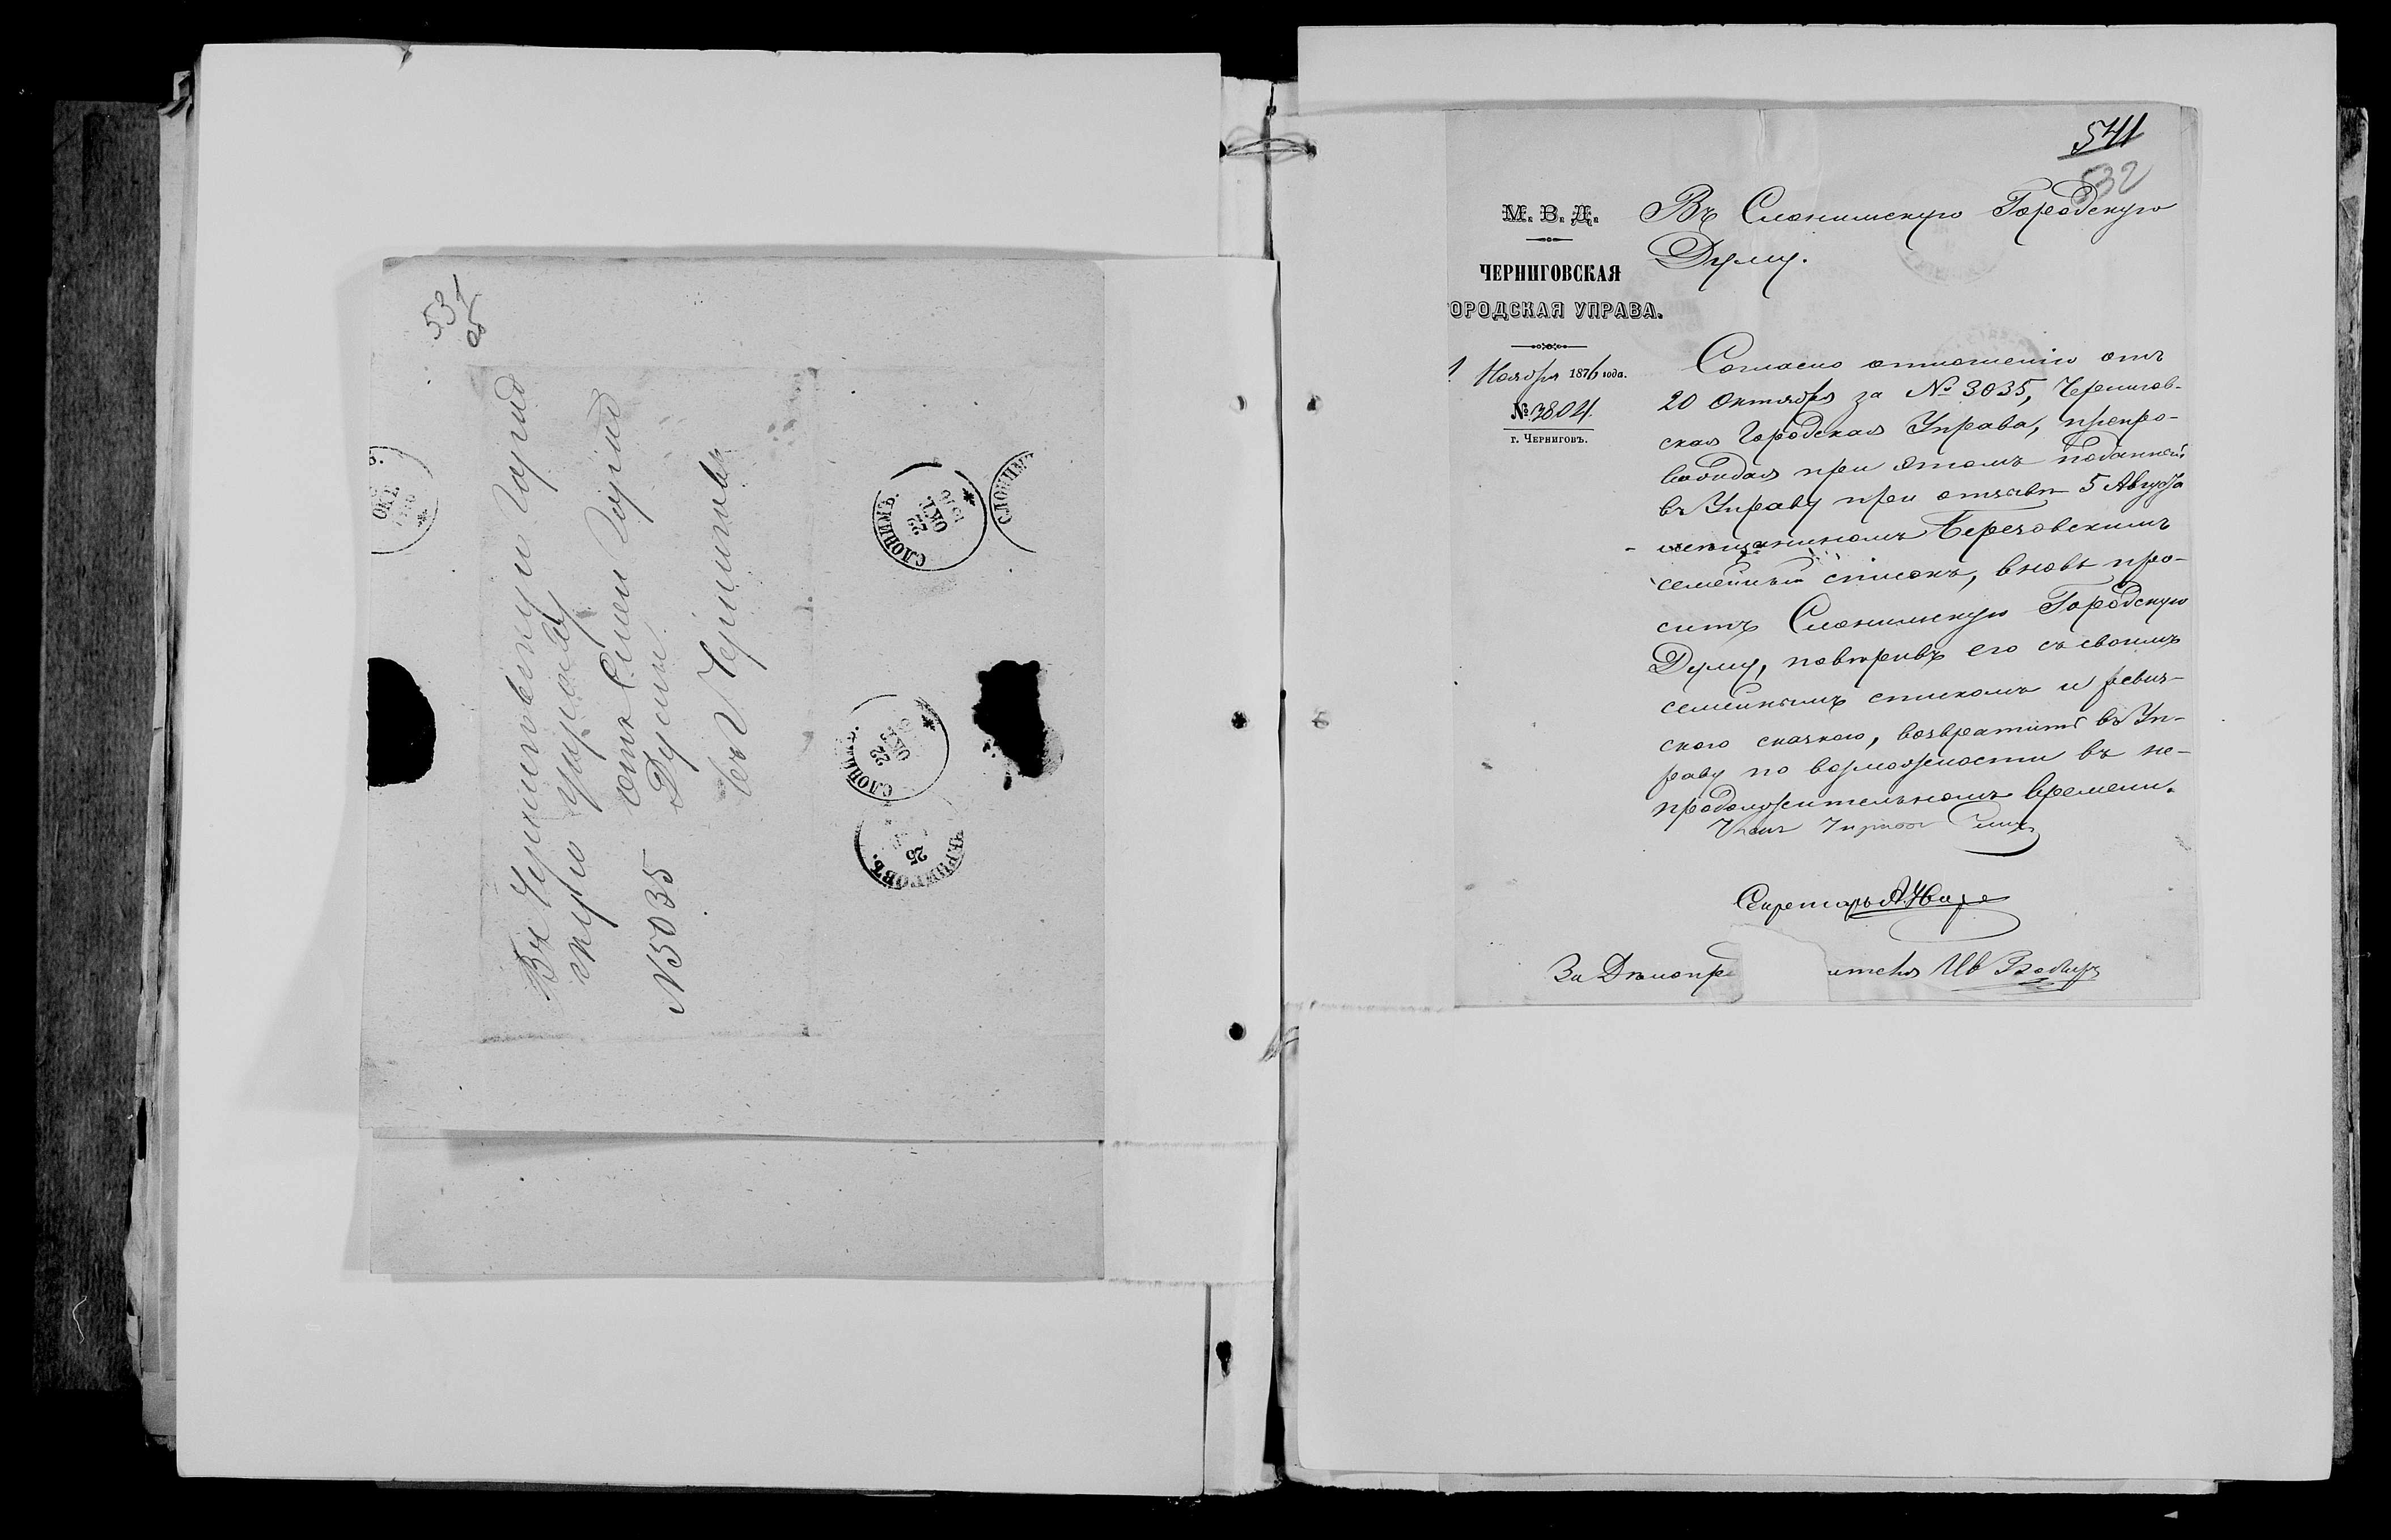 531
об
Въ Черниговскую Город
скую Управу
отъ Слон Город
Думы
№ 3035
въ г Черниговъ
СЛОНИМЪ.
22
ОКТ.
СЛОНИМЪ
СЛОНИМЪ.
22
ОКТ
ЧЕРНИГОВЪ.
25
ОКТ.
541
532
М. В. Д.
ЧЕРНИГОВСКАЯ
ГОРОДСКАЯ УПРАВА.
1 Ноября 1876 года.
№ 3804.
г. Черниговъ.
Въ Слонимскую Городскую
Думу.
Согласно отношенію отъ
20 Октября за № 3035, Чернигов-
ская Городская Управа, препро-
вождая при этомъ поданный
въ Управу при отзывѣ 5 Августа
мѣщаниномъ Березовскимъ
семейный списокъ, вновь про-
ситъ Слонимскую Городскую
Думу, повѣривъ его съ своимъ
семейнымъ спискомъ и ревиз-
скою сказкою, возвратить въ Уп-
раву по возможности въ не-
продолжительномъ времени.
Членъ Управы
Секретарь
За Дѣлопр ителя Ив